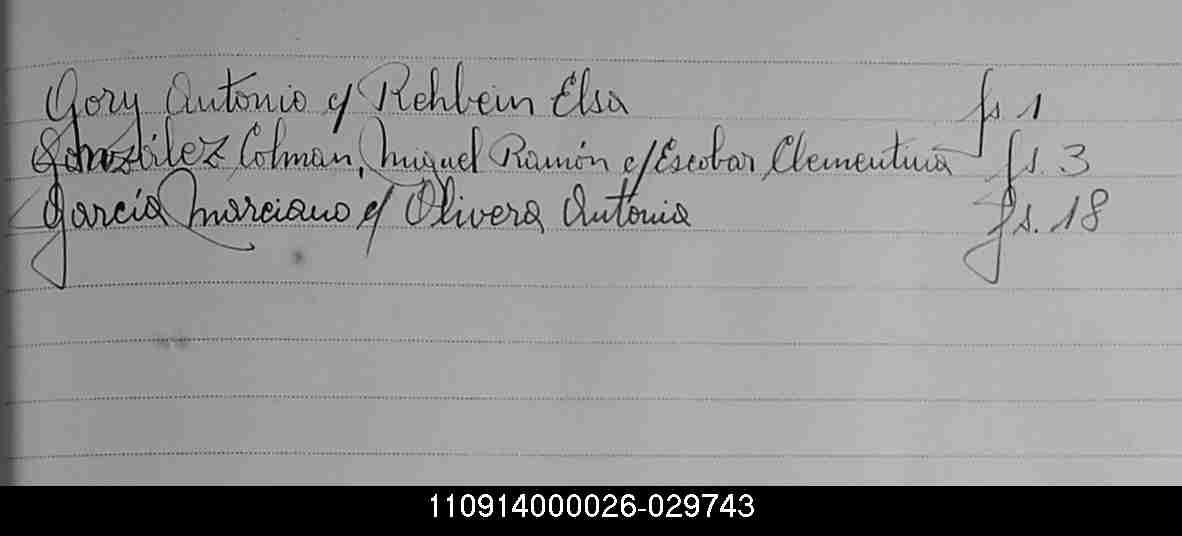 Gory Antonio c/ Rehbein Elsa fs 1
González Colman, Miguel Ramón c/ Escobar Clementina fs. 3
García Marciano c/ Olivera Antonia fs. 18
110914000026-029743